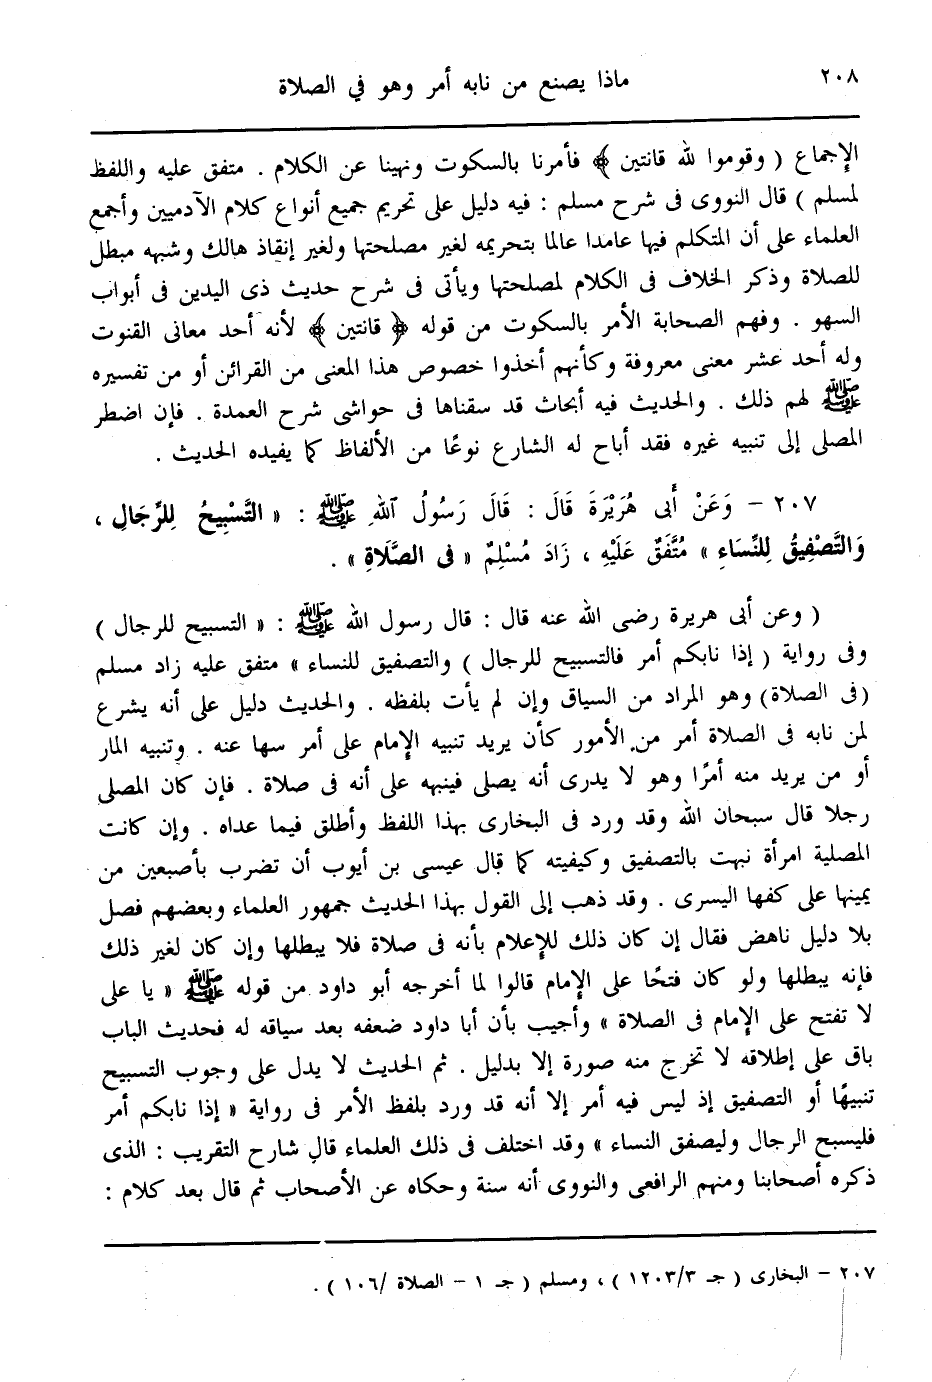 ٢٠٨
ماذا يصنع من نابه أمر وهو في الصلاة
الإجماع ( وقوموا لله قانتين ﴾ فأمرنا بالسكوت ونهينا عن الكلام . متفق عليه واللفظ
لمسلم ) قال النووى فى شرح مسلم : فيه دليل على تحريم جميع أنواع كلام الآدميين وأجمع
العلماء على أن المتكلم فيها عامدا عالما بتحريمه لغير مصلحتها ولغير إنقاذ هالك وشبهه مبطل
للصلاة وذكر الخلاف فى الكلام لمصلحتها ويأتى فى شرح حديث ذى اليدين فى أبواب
السهو . وفهم الصحابة الأمر بالسكوت من قوله ﴿ قانتين ﴾ لأنه أحد معانى القنوت
وله أحد عشر معنى معروفة وكأنهم أخذوا خصوص هذا المعنى من القرائن أو من تفسيره
ﷺ لهم ذلك . والحديث فيه أبحاث قد سقناها فى حواشى شرح العمدة . فإن اضطر
المصلى إلى تنبيه غيره فقد أباح له الشارع نوعًا من الألفاظ كما يفيده الحديث .
٢٠٧ – وَعَنْ أَبى هُرَيْرَةَ قَالَ : قَالَ رَسُولُ اللهِ ﷺ : « التَّسْبِيحُ لِلرِّجَالِ ،
وَالتَّصْفِيقُ لِلنِّسَاءِ » مُتَّفَقٌ عَلَيْهِ ، زَادَ مُسْلِمٌ « فى الصَّلَاةِ » .
( وعن أبى هريرة رضى الله عنه قال : قال رسول الله ﷺ : « التسبيح للرجال )
وفى رواية ( إذا نابكم أمر فالتسبيح للرجال ) والتصفيق للنساء » متفق عليه زاد مسلم
(فى الصلاة) وهو المراد من السياق وإن لم يأت بلفظه . والحديث دليل على أنه يشرع
لمن نابه فى الصلاة أمر من الأمور كأن يريد تنبيه الإمام على أمر سها عنه . وتنبيه المار
أو من يريد منه أمرًا وهو لا يدرى أنه يصلى فينبهه على أنه فى صلاة . فإن كان المصلى
رجلا قال سبحان الله وقد ورد فى البخارى بهذا اللفظ وأطلق فيما عداه . وإن كانت
المصلية امرأة نبهت بالتصفيق وكيفيته كما قال عيسى بن أيوب أن تضرب بأصبعين من
يمينها على كفها اليسرى . وقد ذهب إلى القول بهذا الحديث جمهور العلماء وبعضهم فصل
بلا دليل ناهض فقال إن كان ذلك للإعلام بأنه فى صلاة فلا يبطلها وإن كان لغير ذلك
فإنه يبطلها ولو كان فتحًا على الإمام قالوا لما أخرجه أبو داود من قوله ﷺ « يا على
لا تفتح على الإمام فى الصلاة » وأجيب بأن أبا داود ضعفه بعد سياقه له فحديث الباب
باق على إطلاقه لا تخرج منه صورة إلا بدليل . ثم الحديث لا يدل على وجوب التسبيح
تنبيهًا أو التصفيق إذ ليس فيه أمر إلا أنه قد ورد بلفظ الأمر فى رواية « إذا نابكم أمر
فليسبح الرجال وليصفق النساء » وقد اختلف فى ذلك العلماء قال شارح التقريب : الذى
ذكره أصحابنا ومنهم الرافعى والنووى أنه سنة وحكاه عن الأصحاب ثم قال بعد كلام :
٢٠٧ – البخارى ( جـ ١٢٠٣/٣ ) ، ومسلم ( جـ ١ – الصلاة /١٠٦ ) .